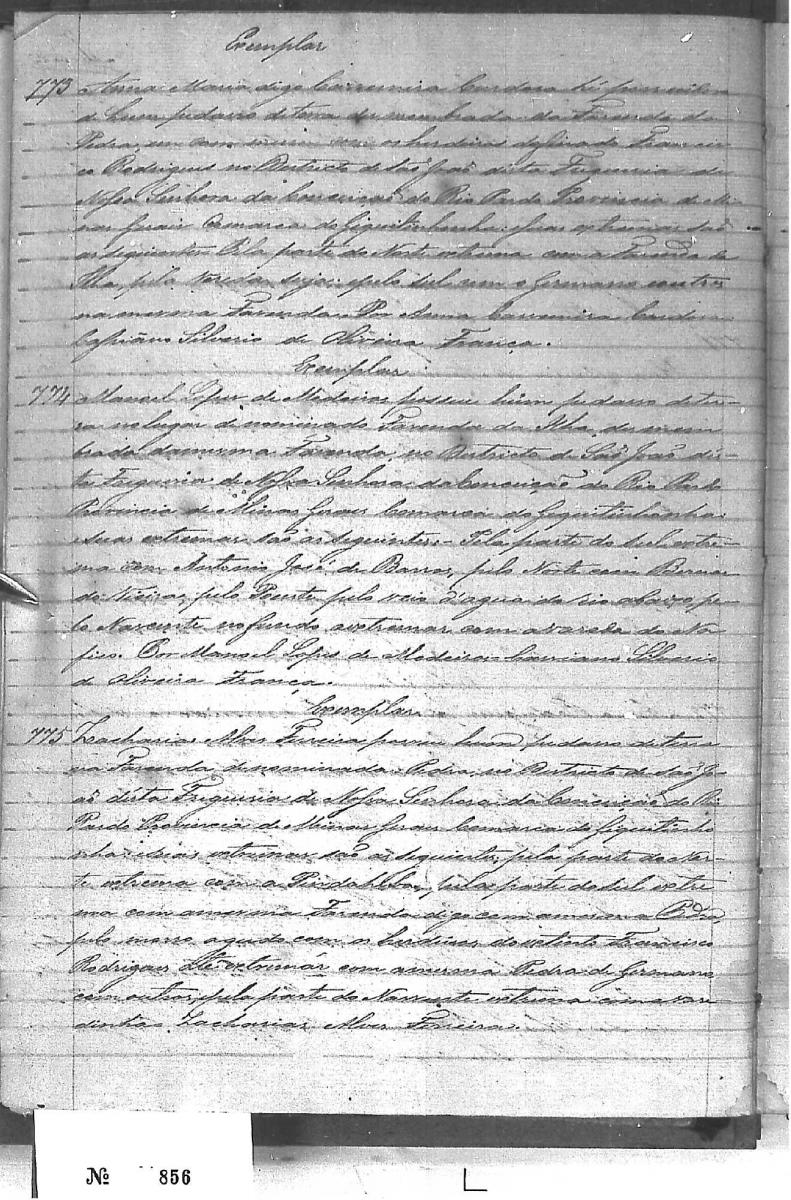 Exemplar
773 Anna Maria digo Carmemira Cardosa hé possuidora
de hum pedasso de terra desmembrada da Fazenda da
Pedra, em comum com os herdeiros do finado Francis-
co Rodrigues no Destricto de São João desta Freguesia de
Nossa Senhora da Conceição do Rio Pardo Provincia de Mi-
nas Gerais Comarca do Giquitinhonha suas extremas são
as seguintes Pela parte do Norte extrema com a Fazenda da
Ilha, pela e pelo sul com o Germano com tros
na mesma Fazenda. Por Anna Carmemira Cardosa
Cassiano Silverio de Oliveira França.
Exemplar
774 Manoel Lopes de Medeiros possue húm pedasso de ter-
ra no lugar denominado Fazenda da Ilha, desmem
brada da mesma Fazenda, no Destricto de São João des-
ta Freguesia de Nossa Senhora da Conceição do Rio Pardo
Provincia de Minas Gerais Comarca do Giquitinhonha
suas extremas são as seguintes - Pela parte do sul extre-
ma com Antonio José de Barros, pelo Norte com Bernar
do Vieira, pelo Poente pelo veio d'agua do rio abaixo pe-
lo Nascente no fundo a extremar com a vareda do
Por Manoel Lopes de Medeiros Cassiano Silverio
de Oliveira França.
Exemplar
775 Zacharias Alves Ferreira possue hum pedasso de terra
na Fazenda denominada Pedra, no Destricto de São Jo-
ão desta Freguesia de Nossa Senhora da Conceição do Rio
Pardo Provincia de Minas Gerais Comarca do Giquitinho
nha suas extremas são as seguintes, pela parte do Nor-
te extrema com a Pindahiba, pela parte do sul extre
ma com a mesma Fazenda digo com a mesma Pedra,
pelo morro agudo com os herdeiros do extinto Francisco
Rodrigues extremar com a mesma Pedra de Germano
com outros, pela parte do Nascente extrema com a vare
dinha. Zacharias Alves Ferreira.
Nº 856